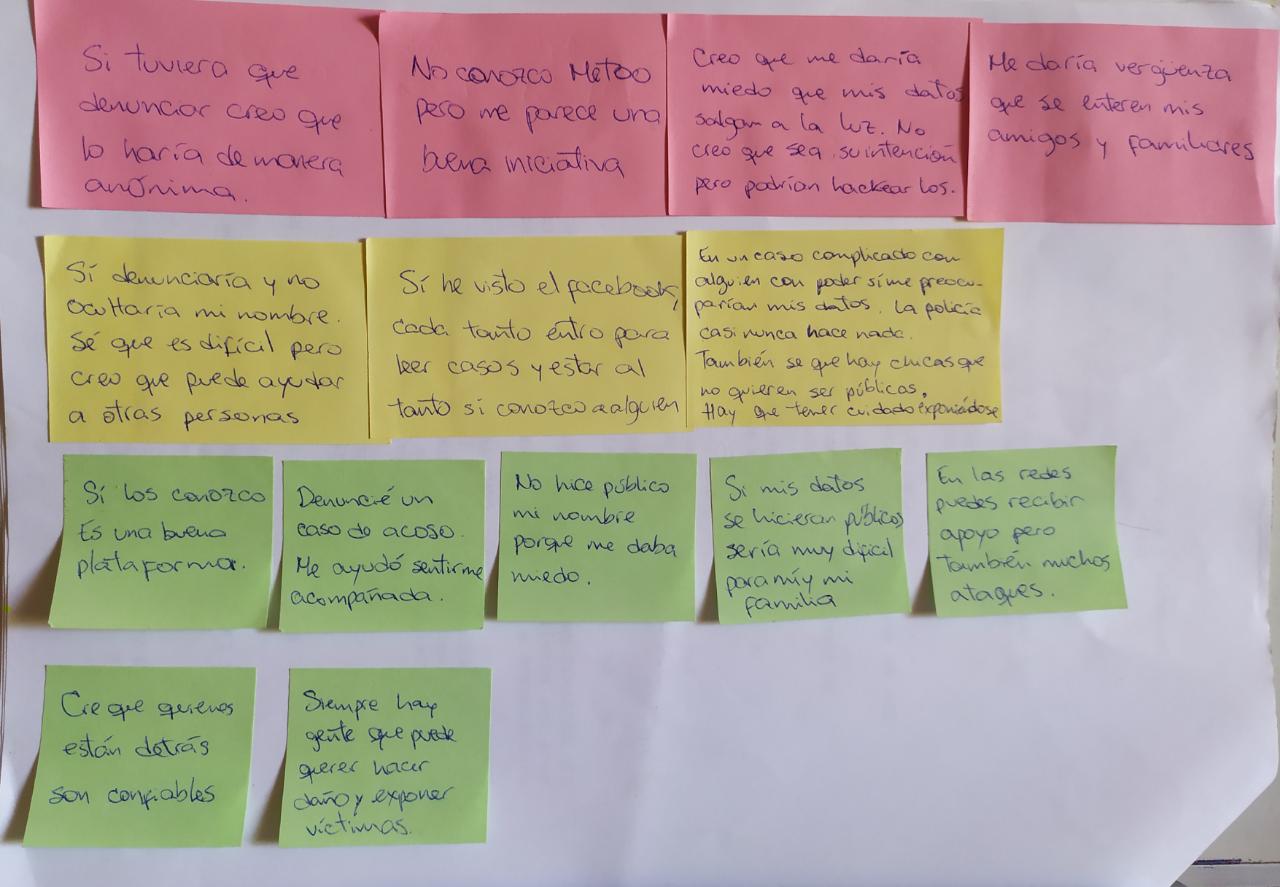 Si tuviera que
denunciar creo que
lo haría de manera
anónima.
No conozco Metoo
pero me parece una
buena iniciativa
Creo que me daría
miedo que mis datos
salgan a la luz. No
creo que sea su intención
pero podrían hackear los.
Me daría vergüenza
que se enteren mis
amigos y familiares
Sí denunciaría y no
ocultaría mi nombre.
Sé que es difícil pero
creo que puede ayudar
a otras personas
Sí he visto el facebook,
cada tanto entro para
leer casos y estar al
tanto si conozco a alguien
En un caso complicado con
alguien con poder sí me preocu-
parían mis datos. La policía
casi nunca hace nada.
También se que hay chicas que
no quieren ser públicas.
Hay que tener cuidado exponiédose
Sí los conozco
Es una buena
plataforma.
Denuncié un
caso de acoso.
Me ayudó sentirme
acompañada.
No hice público
mi nombre
porque me daba
miedo.
Si mis datos
se hicieran públicos
sería muy dificil
para mí y mi
familia
En las redes
puedes recibir
apoyo pero
también muchos
ataques.
Cre que quienes
están detrás
son confiables
Siempre hay
gente que puede
querer hacer
daño y exponer
víctimas.